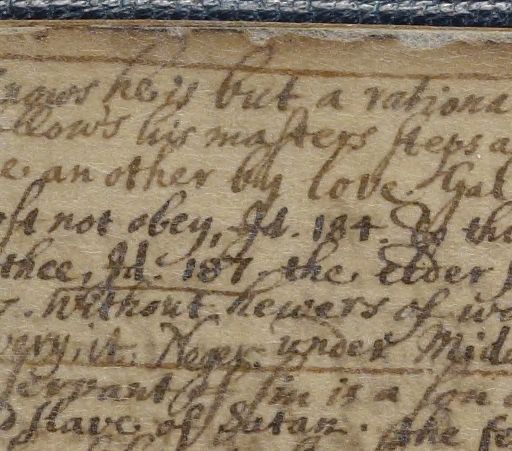 knows he is but a rationa
ollows his masters steps a
e another by love. Gal
ost not obey, Id. 184. To th
thee, Id. 187. the elder
Without hewers of wo
very, it. Neger. under Midd
servant of sin is a son o
slave of Satan. the fe